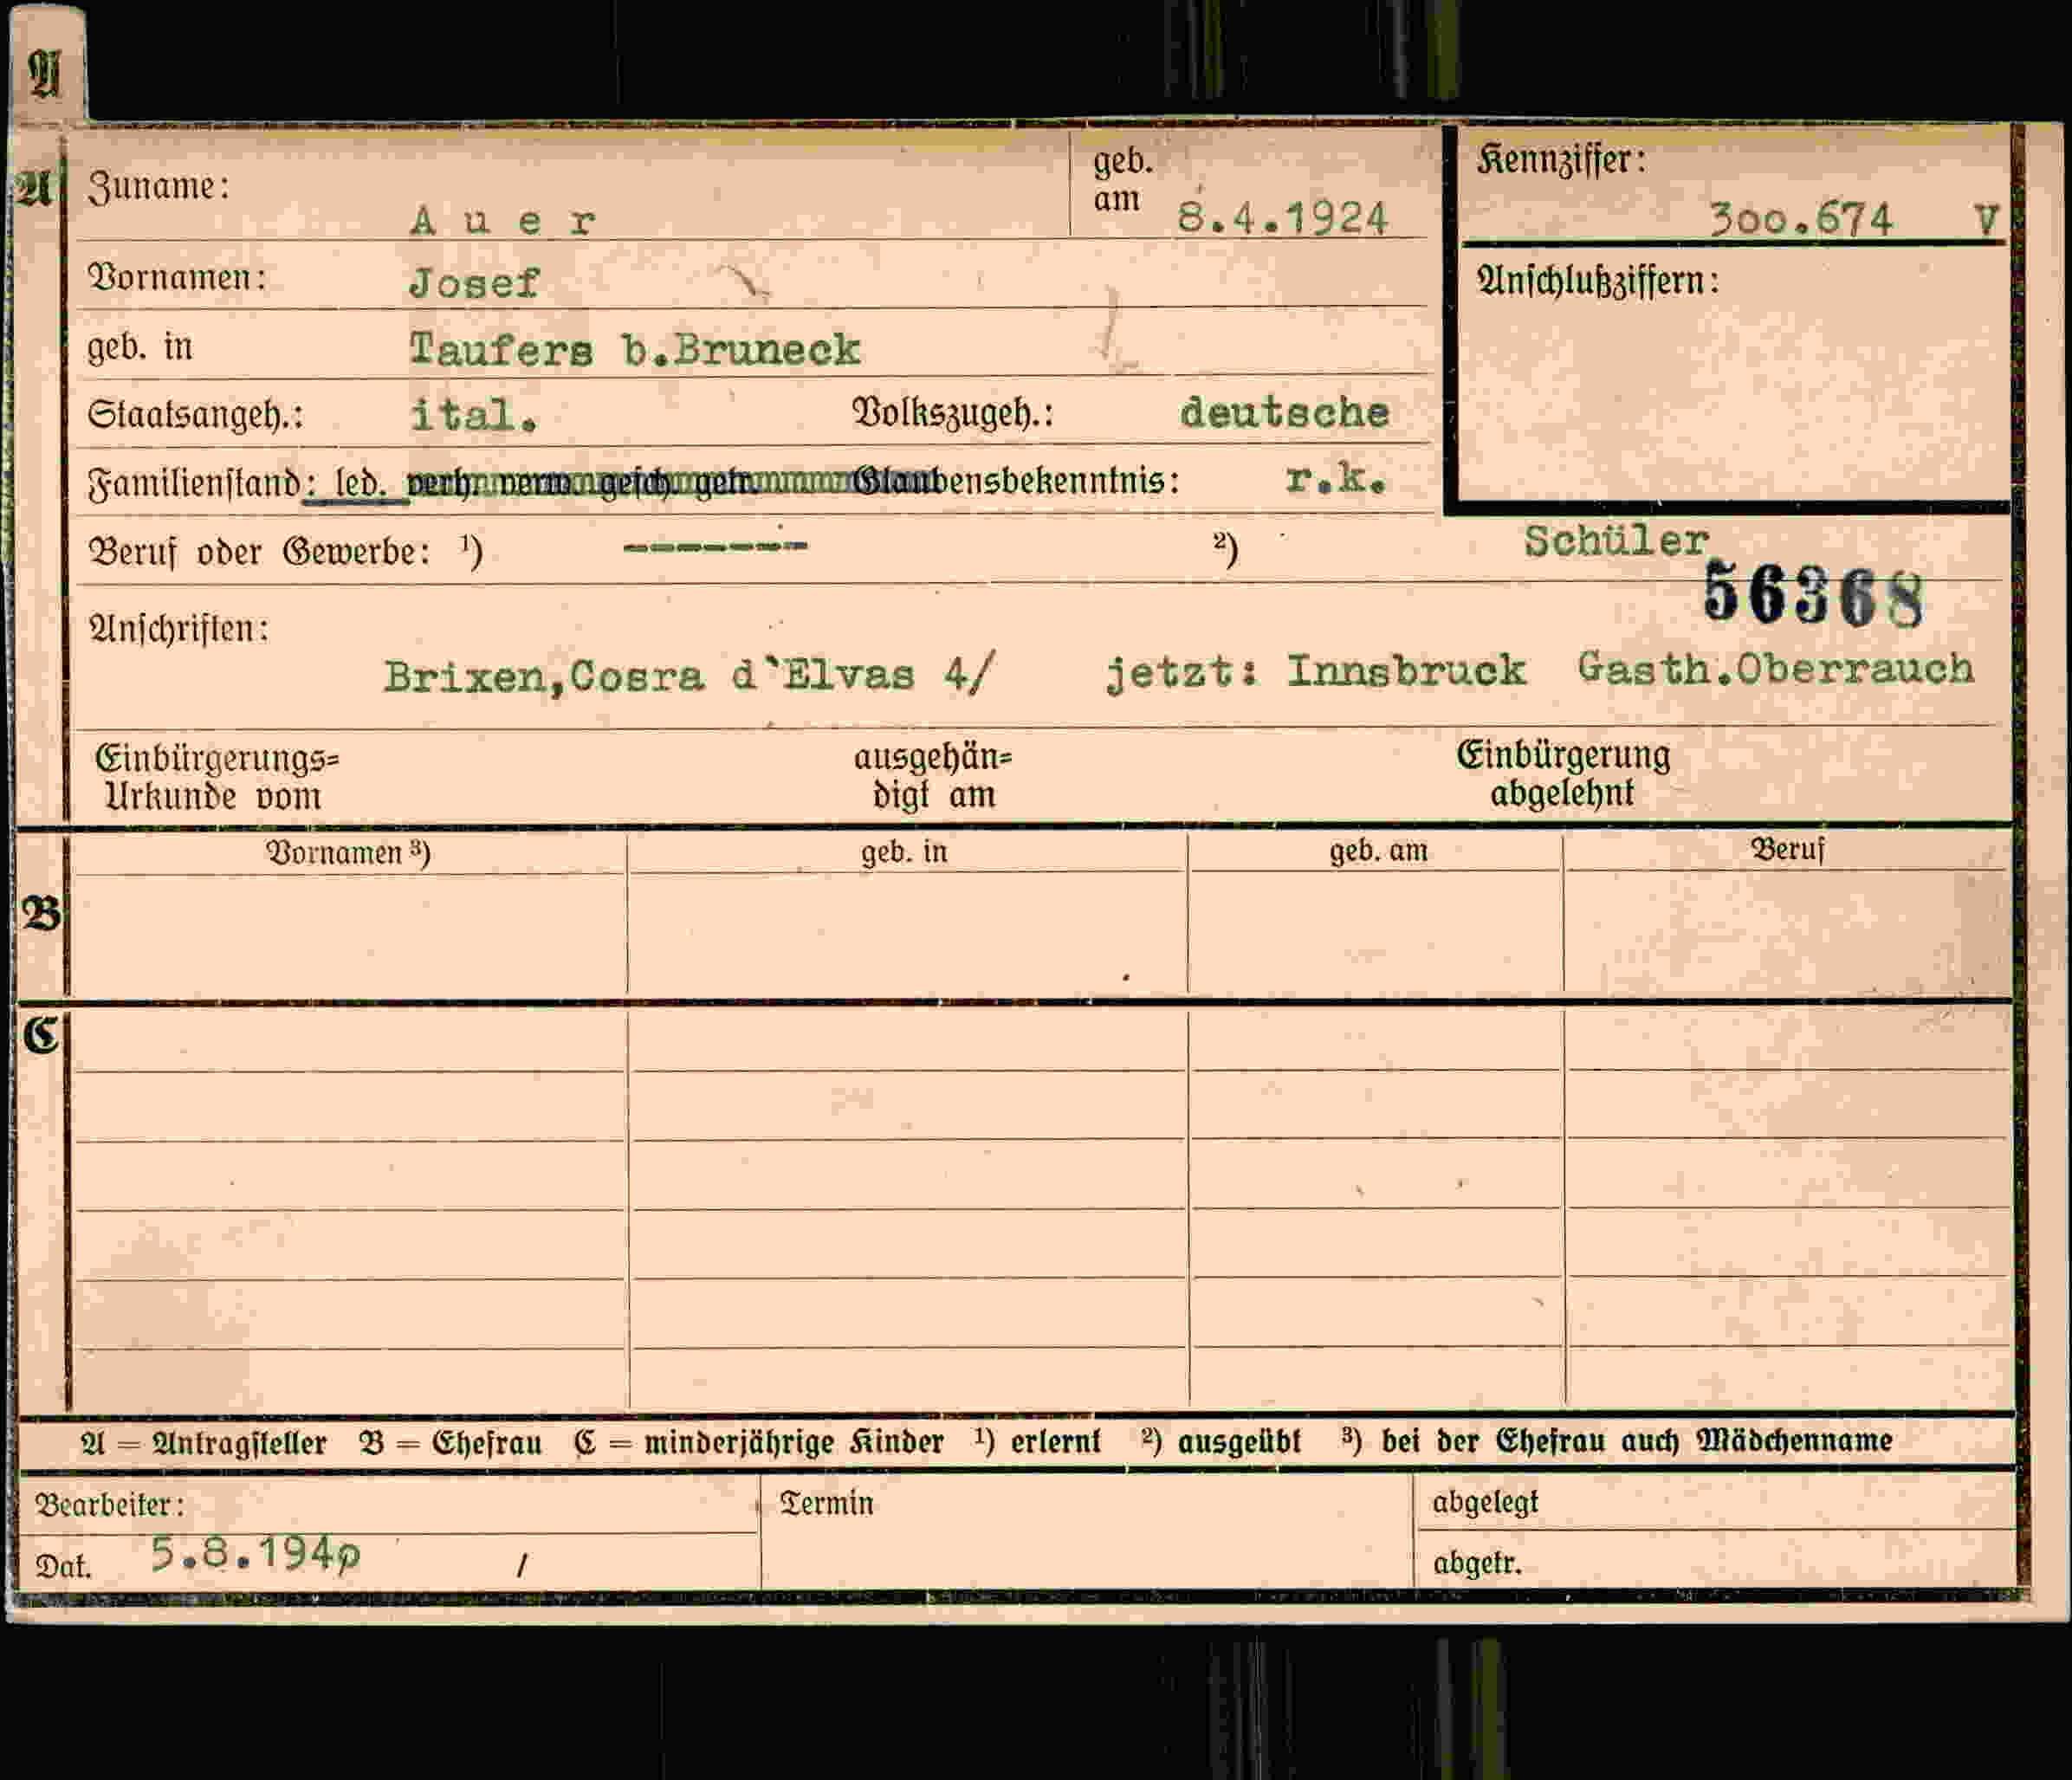 A
A
Zuname: A u e r geb. am 8.4.1924
Kennziffer: 300.674 V
Vornamen: Josef
Anschlußziffern:
geb. in Taufers b.Bruneck
Staatsangeh.: ital. Volkszugeh.: deutsche
Familienstand: led. verh. verw. gesch. getr. Glaubensbekenntnis: r.k.
Beruf oder Gewerbe: ¹) ------- ²) Schüler
56368
Anschriften:
Brixen,Cosra d`Elvas 4/ jetzt: Innsbruck Gasth.Oberrauch
Einbürgerungs= ausgehän= Einbürgerung
Urkunde vom digt am abgelehnt
Vornamen ³) geb. in geb. am Beruf
B
C
A = Antragsteller B = Ehefrau C = minderjährige Kinder ¹) erlernt ²) ausgeübt ³) bei der Ehefrau auch Mädchenname
Bearbeiter: Termin abgelegt
Dat. 5.8.194o / abgetr.